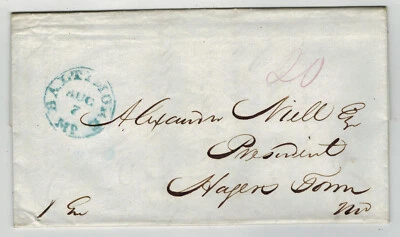 BALTIMORE
MD.
AUG
7
20
Alexander Niell Esq
President
Hagers Town
Md
1